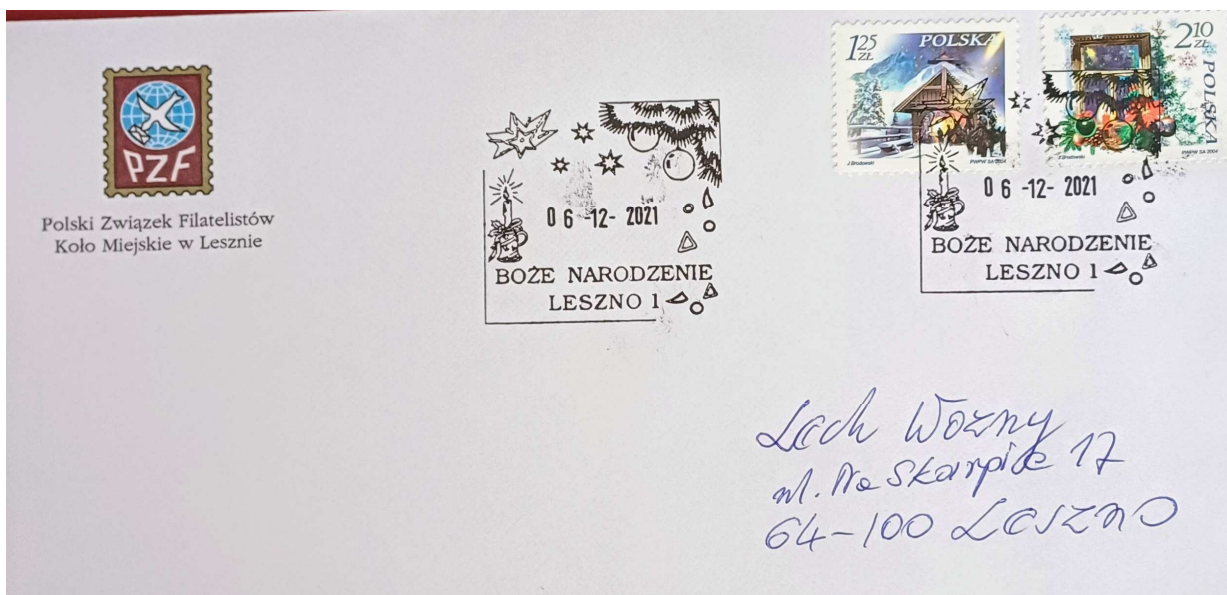 PZF
Polski Związek Filatelistów
Koło Miejskie w Lesznie
06-12-2021
BOŻE NARODZENIE
LESZNO 1
1 25 ZŁ POLSKA
J. Brodowski PWPW SA 2004
2 10 ZŁ
POLSKA
J. Brodowski PWPW SA 2004
06-12-2021
BOŻE NARODZENIE
LESZNO 1
Lech Wozny
ul. Na Skarpie 17
64-100 Leszno